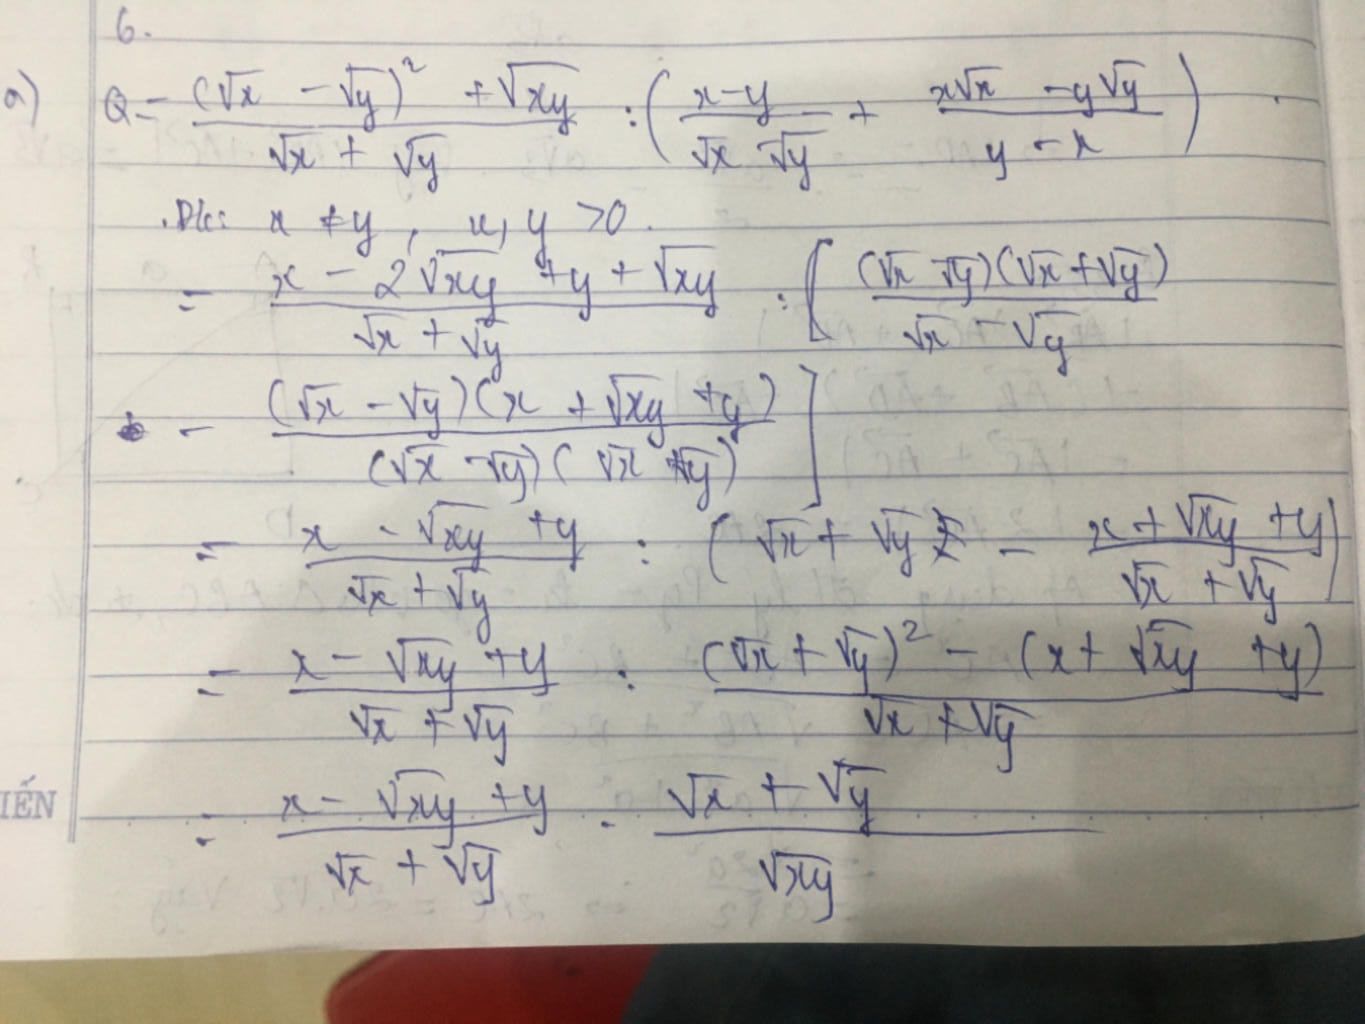 6.
a) Q = \frac{(√x - √y)² + √xy}{√x + √y} : ( \frac{x-y}{√x √y} + \frac{x√x - y√y}{y - x} )
Đk: x ≠ y, x, y > 0.
= \frac{x - 2√xy + y + √xy}{√x + √y} : [ \frac{(√x √y)(√x + √y)}{√x - √y}
- \frac{(√x - √y)(x + √xy + y)}{(√x - √y)(√x + √y)} ]
= \frac{x - √xy + y}{√x + √y} : ( √x + √y - \frac{x + √xy + y}{√x + √y} )
= \frac{x - √xy + y}{√x + √y} : \frac{(√x + √y)² - (x + √xy + y)}{√x + √y}
= \frac{x - √xy + y}{√x + √y} . \frac{√x + √y}{√xy}
IẾN